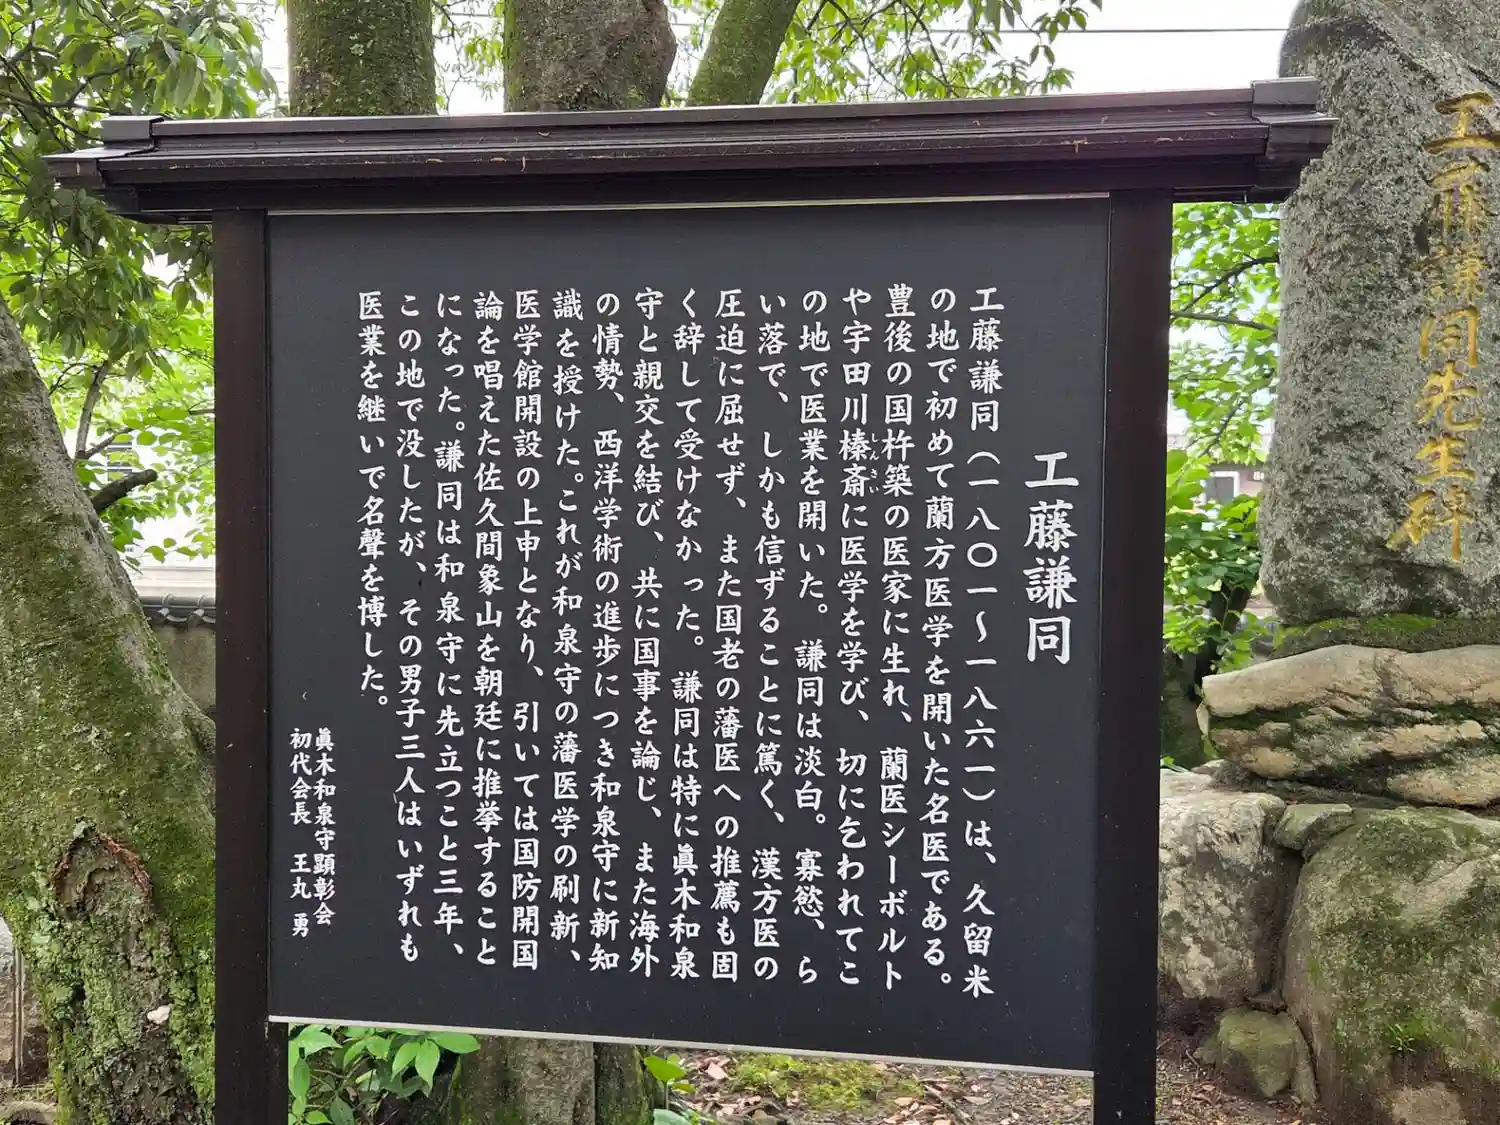 工藤謙同先生碑
工藤謙同
工藤謙同（一八〇一〜一八六一）は、久留米
の地で初めて蘭方医学を開いた名医である。
豊後の国杵築の医家に生れ、蘭医シーボルト
や宇田川榛斎に医学を学び、切に乞われてこ
しんさい
の地で医業を開いた。謙同は淡白。寡慾、ら
い落で、しかも信ずることに篤く、漢方医の
圧迫に屈せず、また国老の藩医への推薦も固
く辞して受けなかった。謙同は特に眞木和泉
守と親交を結び、共に国事を論じ、また海外
の情勢、西洋学術の進歩につき和泉守に新知
識を授けた。これが和泉守の藩医学の刷新、
医学館開設の上申となり、引いては国防開国
論を唱えた佐久間象山を朝廷に推挙すること
になった。謙同は和泉守に先立つこと三年、
この地で没したが、その男子三人はいずれも
医業を継いで名聲を博した。
眞木和泉守顕彰会
初代会長　王丸　勇